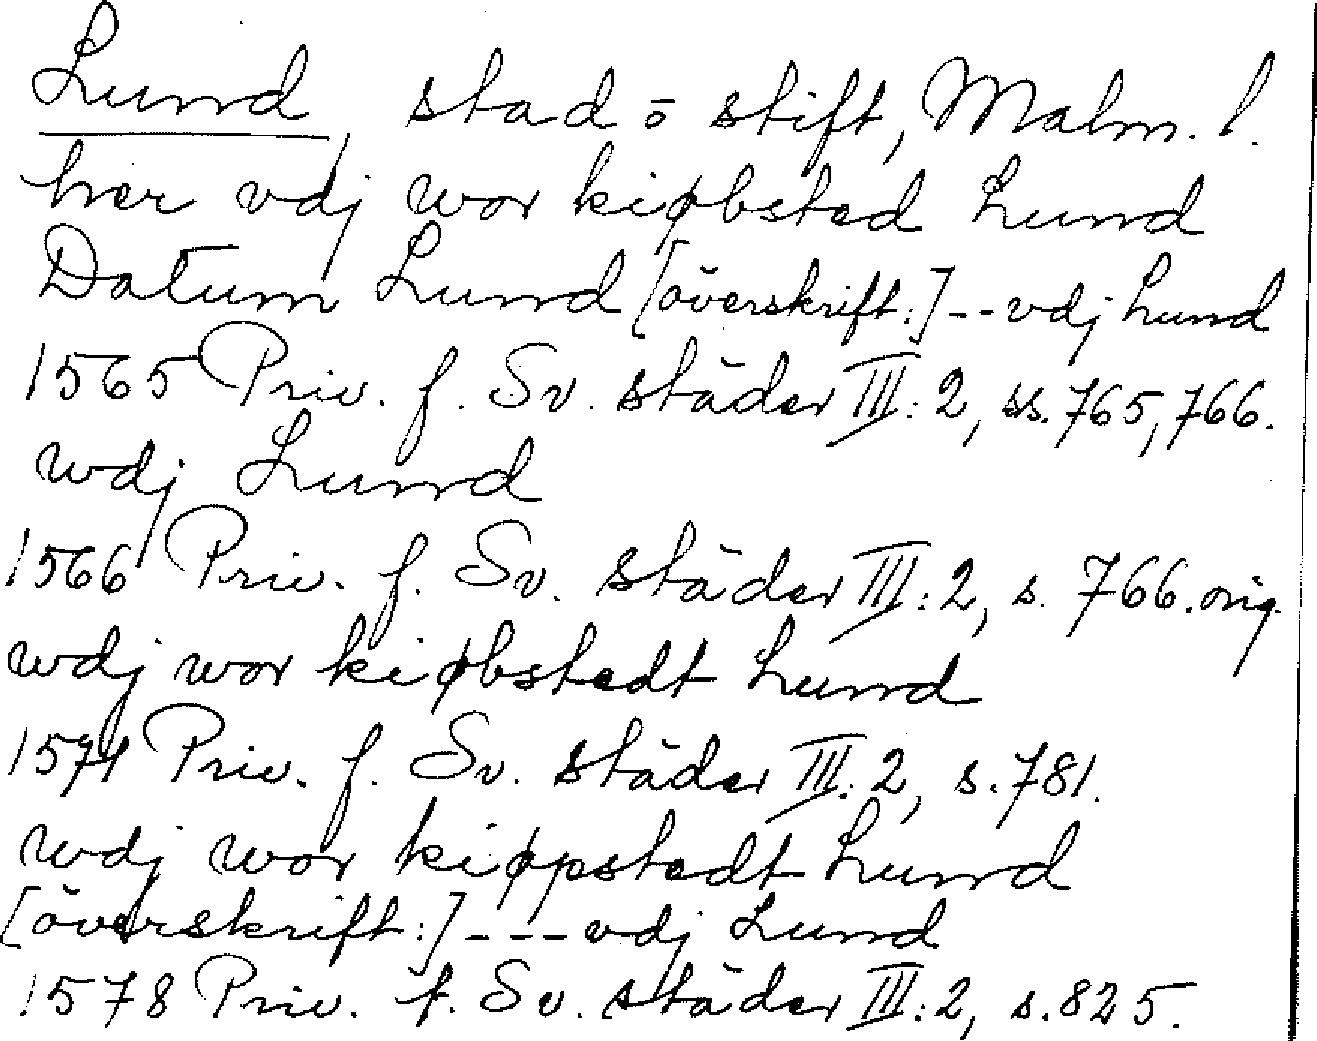 Lund, stad o stift, Malm. l.
hier vdj wor kiøbsted Lund
Datum Lund [överskrift:] -- vdj Lund
1565 Priv. f. Sv. städer III:2, ss. 765, 766.
wdj Lund
1566 Priv. f. Sv. städer III:2, s. 766. orig.
wdj wor kiøbstedt Lund
1571 Priv. f. Sv. städer III:2, s. 781.
wdj wor kiøpstedt Lund
[överskrift:] --- vdj Lund
1578 Priv. f. Sv. städer III:2, s. 825.